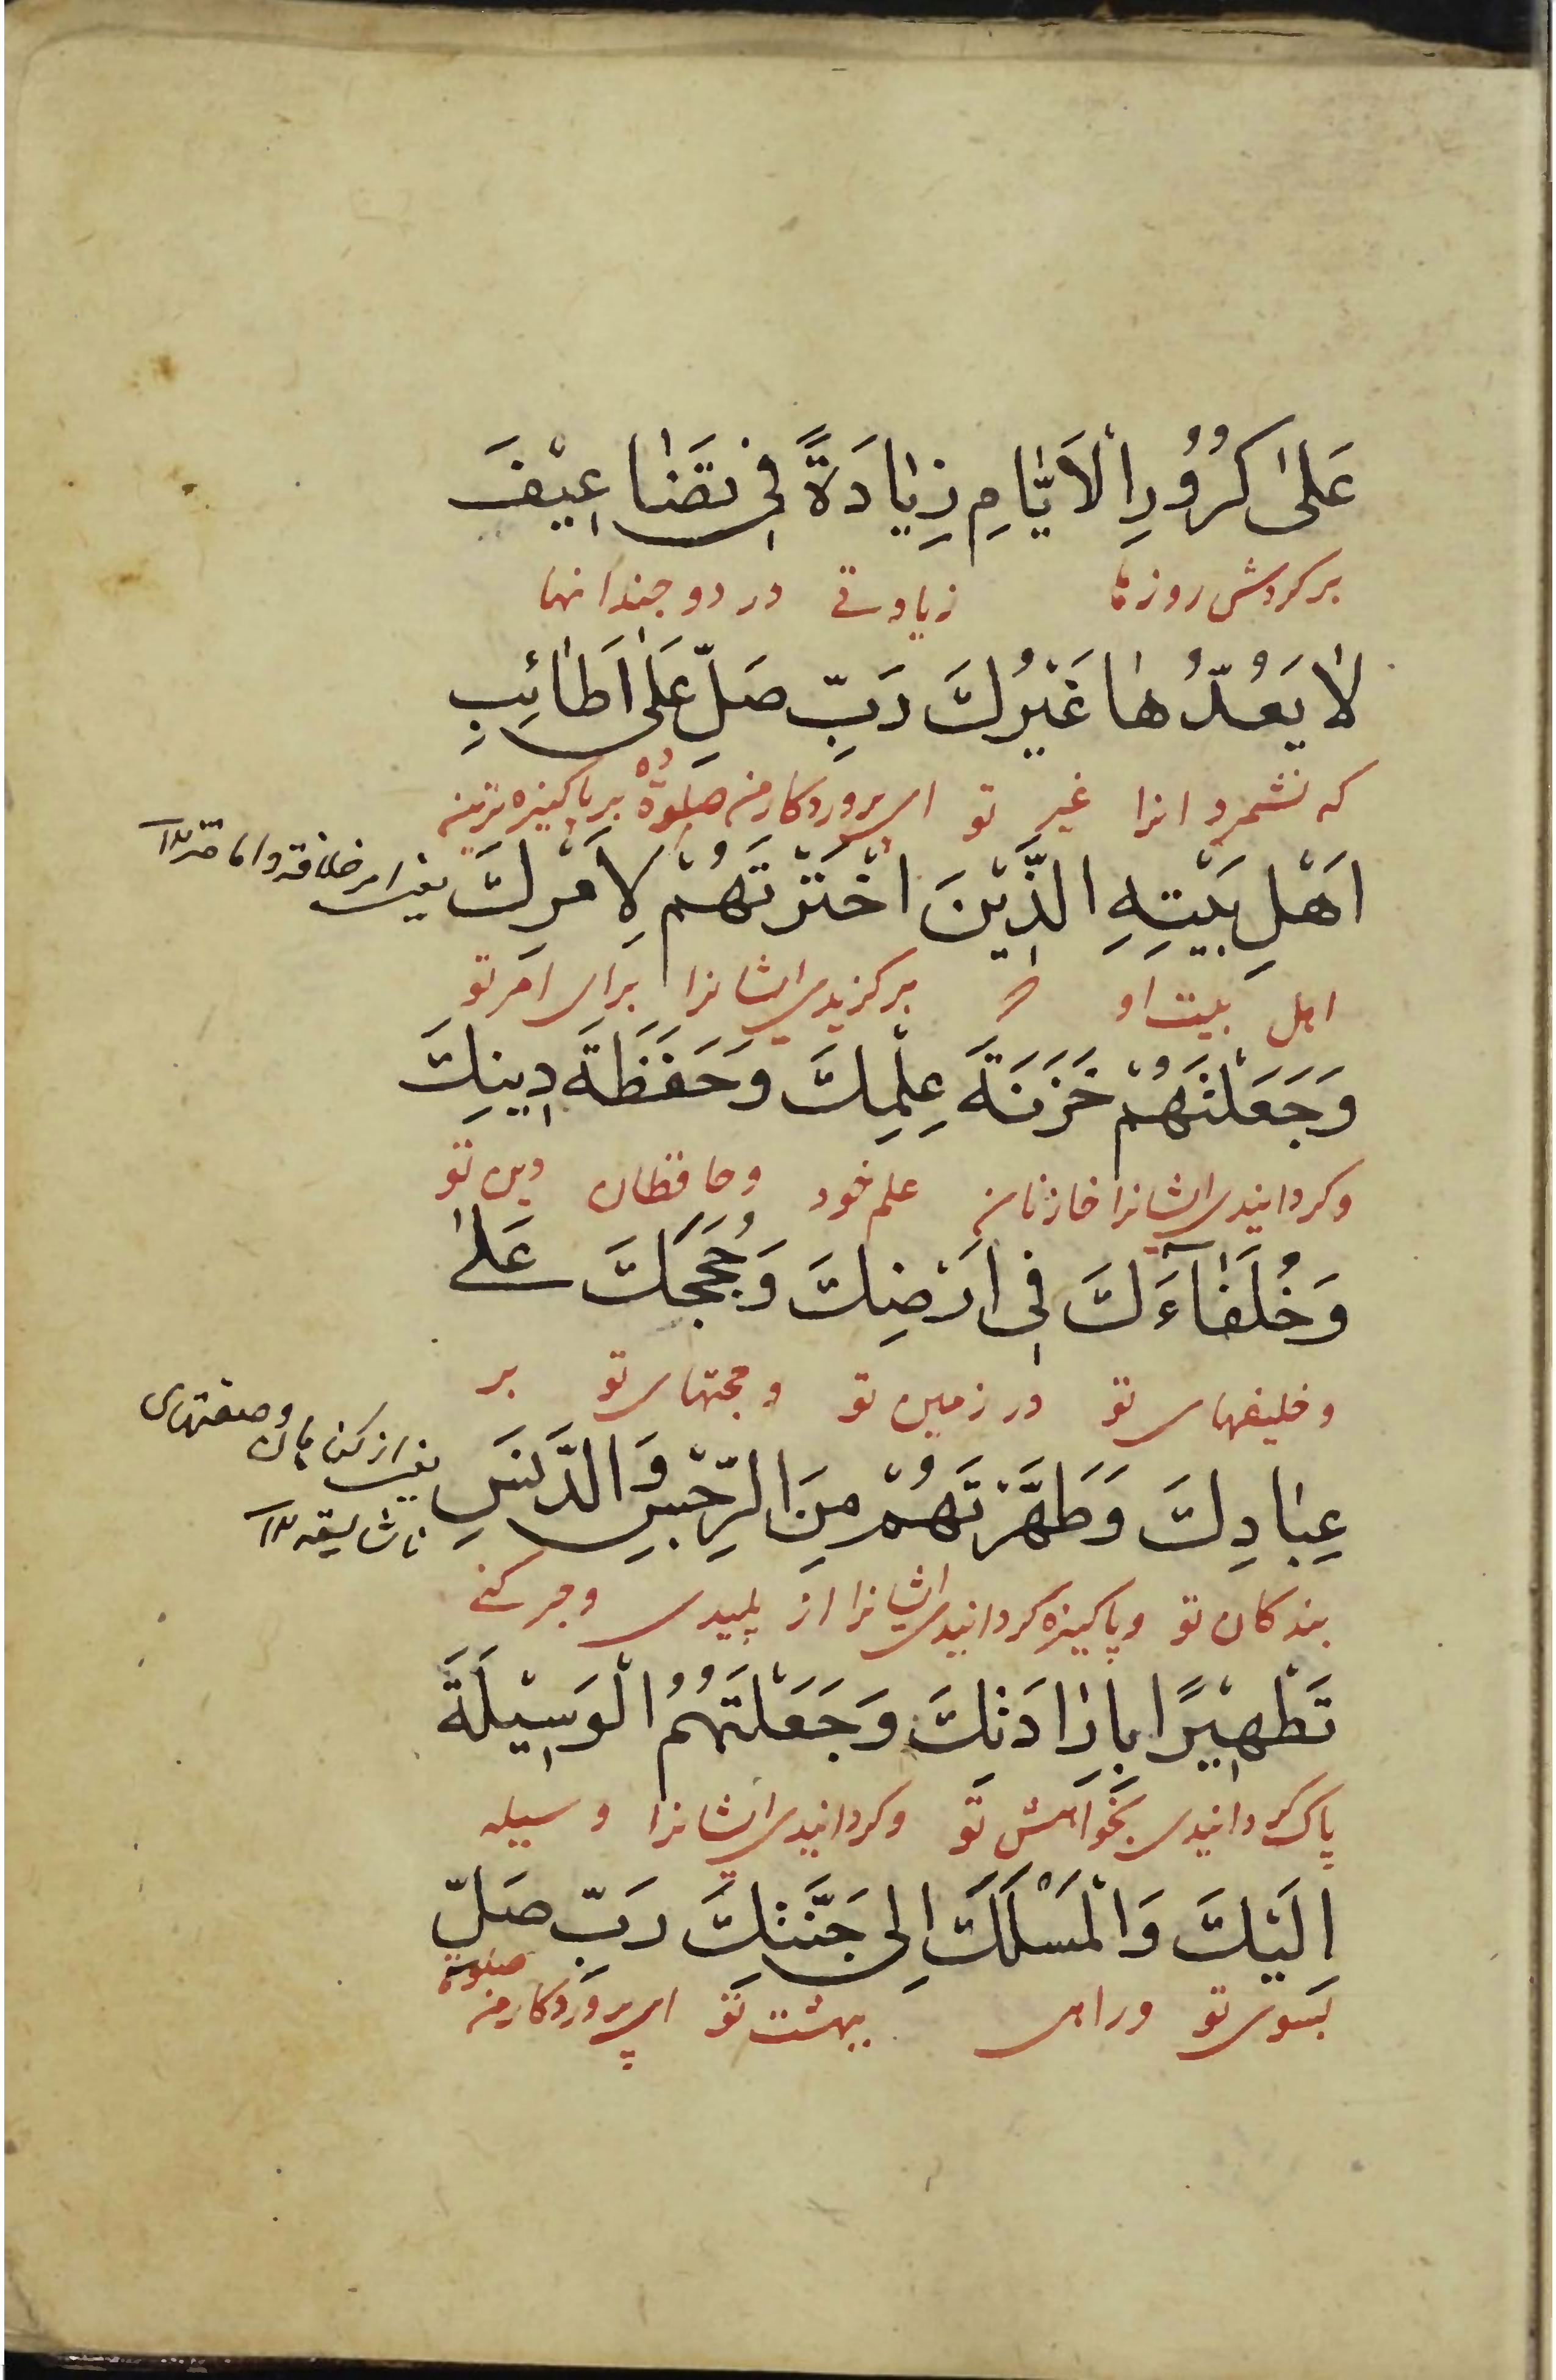 عَلىٰ كُرُوُرِ الْاَيّٰامِ زِيٰادَةً فِى تَضٰاعِيْفَ
بر کردش روزها زیادتے در دو چندانها
لٰا يَعُدُّهٰا غَيْرُكَ رَبِّ صَلِّ عَلىٰ اَطٰائِبِ
که نشمرد انرا غیر تو ای پروردکار من صلوة ده بر پاکیزه ترین
اَهْلِ بَيْتِهِ الَّذِيْنَ اخْتَرْتَهُمْ لِاَمْرِكَ
یعنے امر خلافة و امامة ١٢
اهل بیت او که برکزیدی ایشانرا برای امر تو
وَجَعَلْتَهُمْ خَزَنَةَ عِلْمِكَ وَحَفَظَةَ دِينِكَ
وکردانیدی ایشانرا خازنان علم خود وحافظان دین تو
وَخُلَفٰآءَكَ فِى اَرْضِكَ وَحُجَجَكَ عَلىٰ
وخلیفهای تو در زمین تو وحجتهای تو بر
عِبٰادِكَ وَطَهَّرْتَهُمْ مِنَ الرِّجْسِ وَالدَّنَسِ
یعنے از کناهان وصفتهای
ناشایسته ١٢
بندکان تو وپاکیزه کردانیدی ایشانرا از پلیدی وچرکنے
تَطْهِيْرًا بِاِرٰادَتِكَ وَجَعَلْتَهُمُ الْوَسِيْلَةَ
پاک کردانیدی بخواهش تو وکردانیدی ایشانرا وسیله
اِلَيْكَ وَالْمَسْلَكَ اِلى جَنَّتِكَ رَبِّ صَلِّ
بسوی تو وراهی ببهشت تو ای پروردکار من صلوة